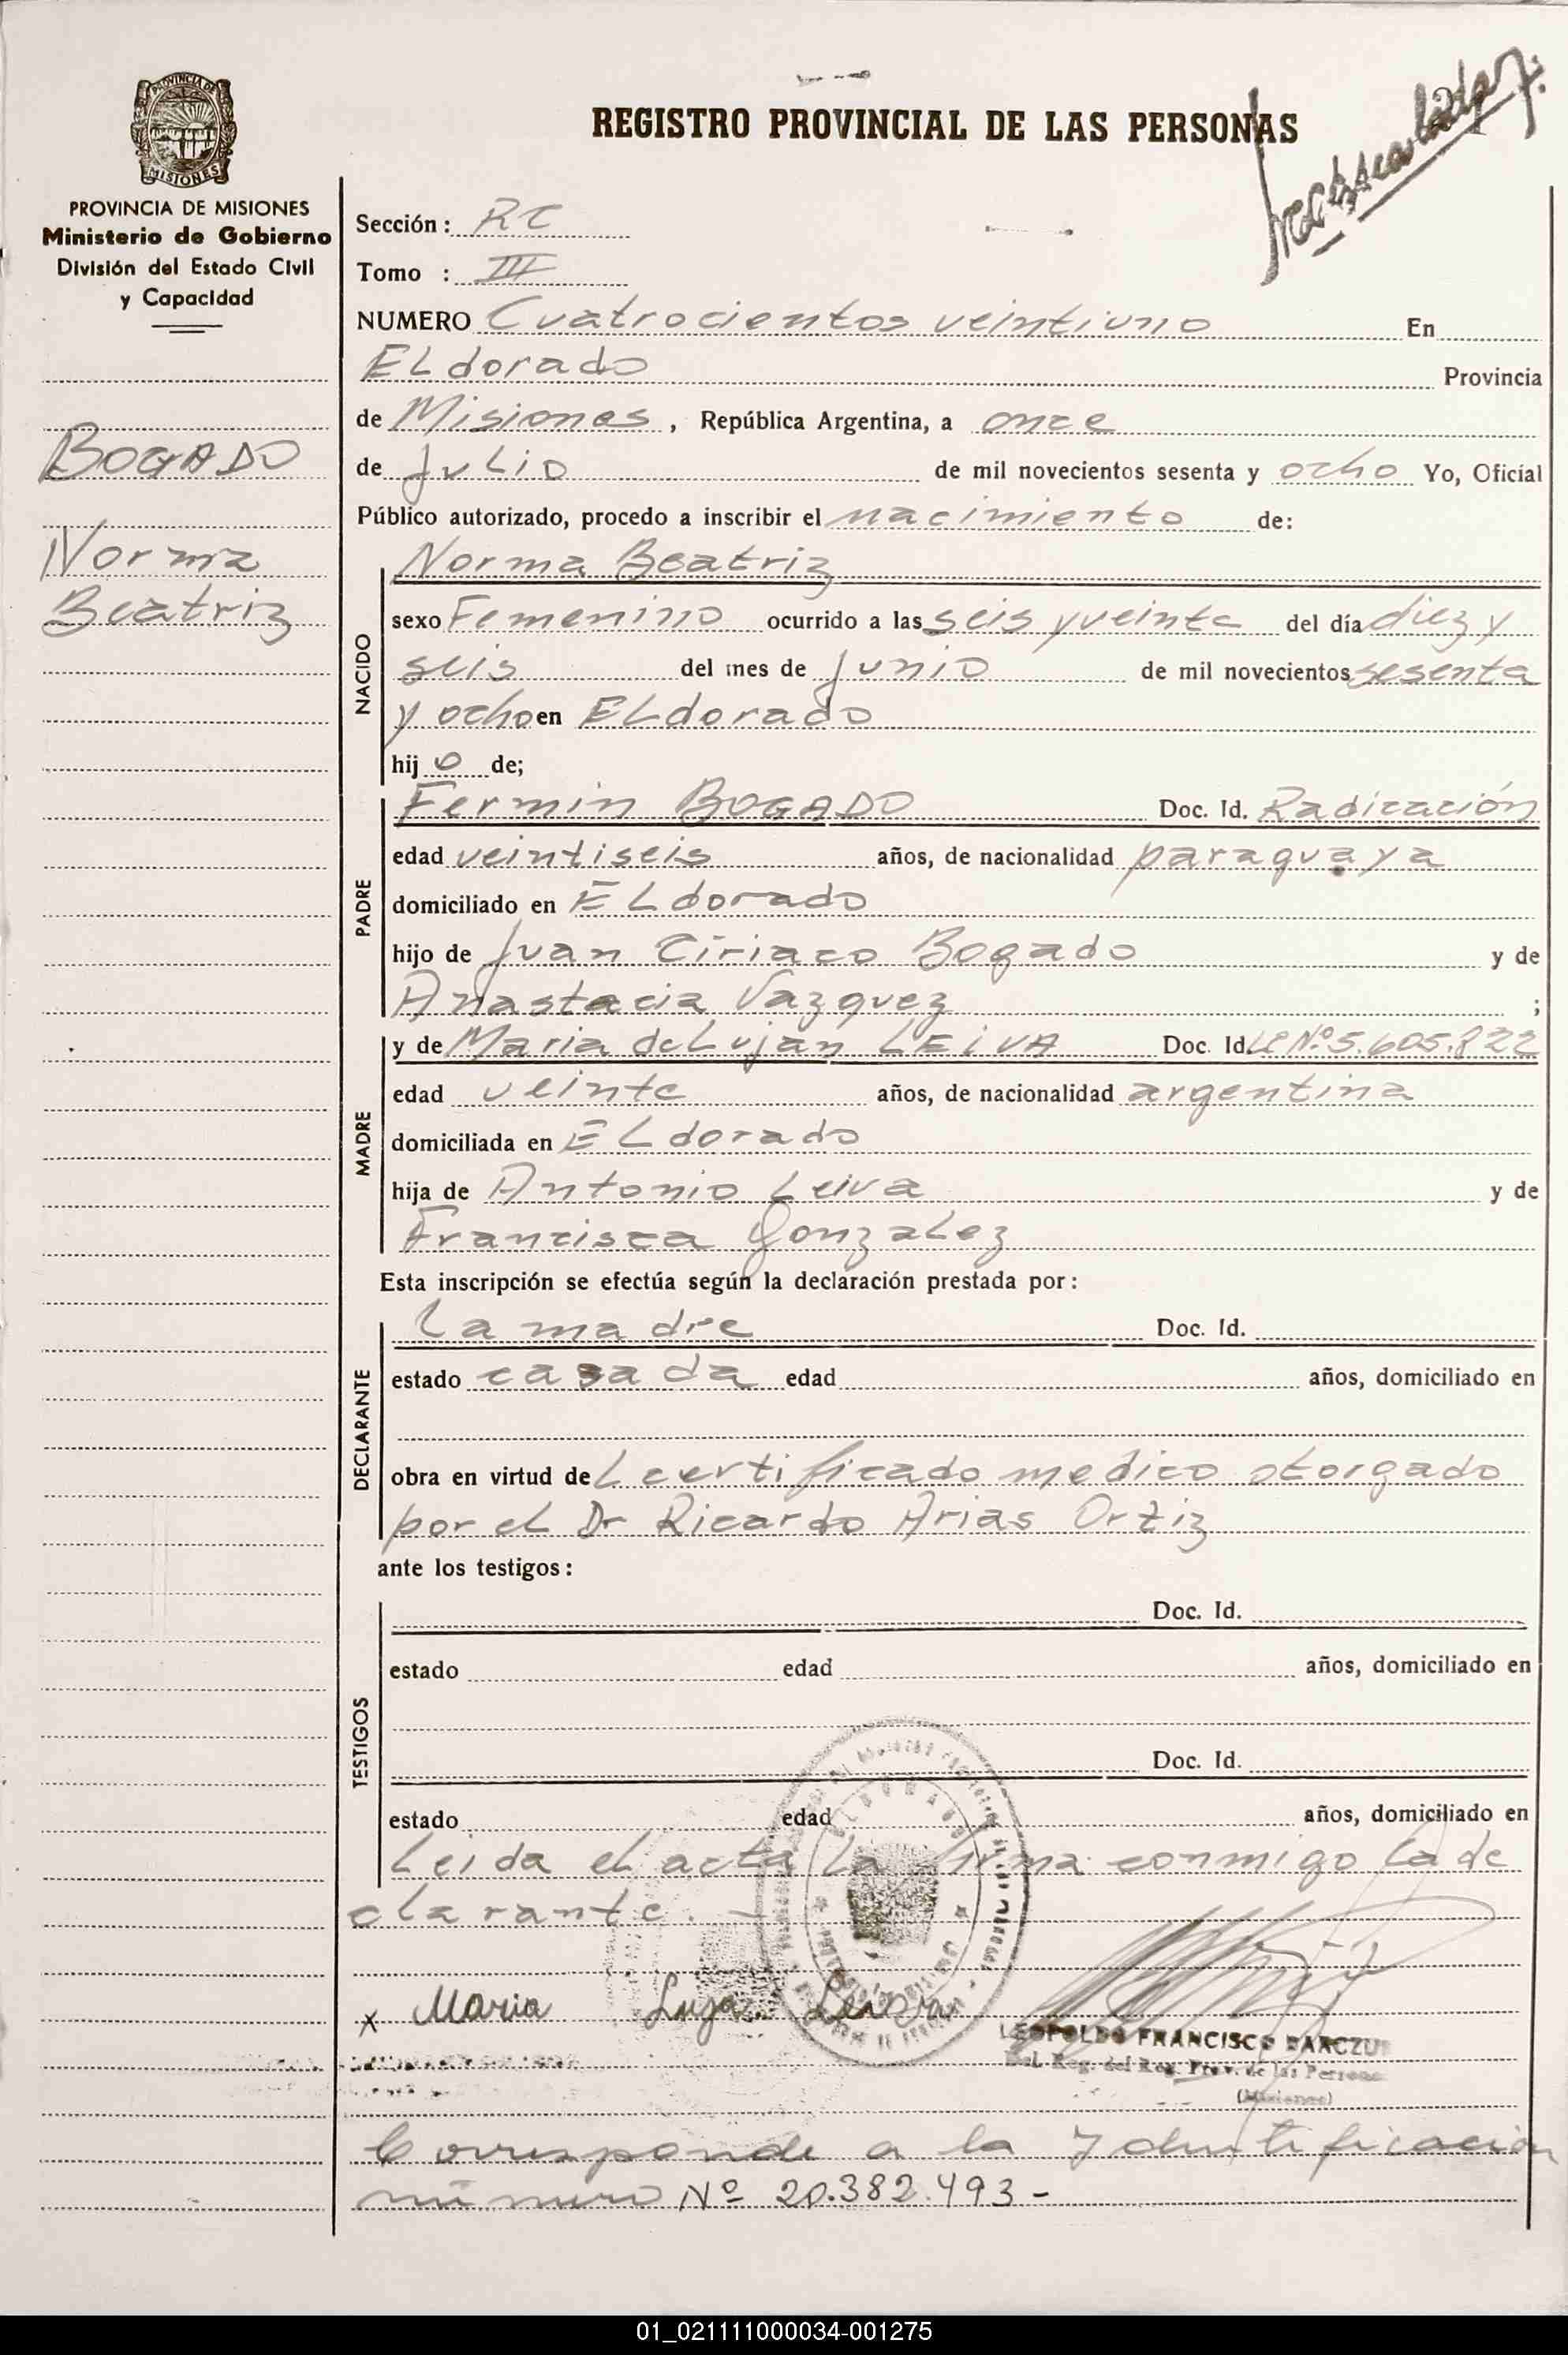 PROVINCIA DE MISIONES
PROVINCIA DE MISIONES
Ministerio de Gobierno
División del Estado Civil
y Capacidad
BOGADO
Norma
Beatriz
REGISTRO PROVINCIAL DE LAS PERSONAS
Sección: RC
Tomo : III
NUMERO Cuatrocientos veintiuno En
ELdorado Provincia
de Misiones, República Argentina, a once
de Julio de mil novecientos sesenta y ocho Yo, Oficial
Público autorizado, procedo a inscribir el nacimiento de:
NACIDO
Norma Beatriz
sexo Femenino ocurrido a las seis y veinte del día diez y
seis del mes de Junio de mil novecientos sesenta
y ocho en ELdorado
hij o de;
PADRE
Fermin BOGADO Doc. Id. Radicación
edad veintiseis años, de nacionalidad paraguaya
domiciliado en ELdorado
hijo de Juan Ciriaco Bogado y de
Anastacia Vazquez ;
MADRE
y de Maria de Lujan LEIVA Doc. Id. LC Nº 5.605.822
edad veinte años, de nacionalidad argentina
domiciliada en ELdorado
hija de Antonio Leiva y de
Francisca Gonzalez
Esta inscripción se efectúa según la declaración prestada por:
DECLARANTE
La madre Doc. Id.
estado casada edad años, domiciliado en
obra en virtud deL certificado medico otorgado
por el Dr Ricardo Arias Ortiz
ante los testigos:
TESTIGOS
Doc. Id.
estado edad años, domiciliado en
Doc. Id.
estado edad años, domiciliado en
Leida el acta La firma conmigo la de
clarante. -
ELDORADO
x Maria Lujan Leiva
LEOPOLDO FRANCISCO
Del. Reg. del Reg. Prov. de las Persona
(Misiones)
Corresponde a la Identificación
número Nº 20.382.493 -
01_021111000034-001275